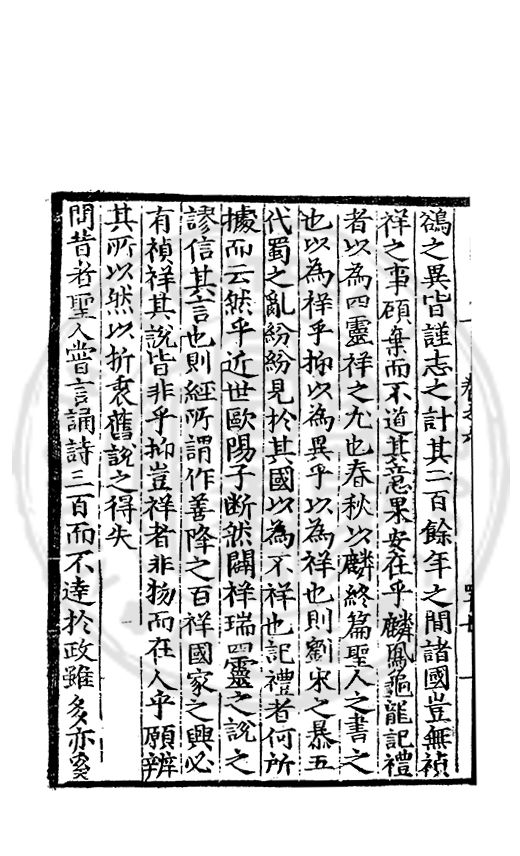 鵒之異皆謹志之計其二百餘年之間諸國豈無禎
祥之事顧棄而不道其意果安在乎麟鳳龜龍記禮
者以為四靈祥之尤也春秋以麟終篇聖人之書之
也以為祥乎抑以為異乎以為祥也則劉宋之暴五
代蜀之亂紛紛見於其國以為不祥也記禮者何所
據而云然乎近世歐陽子斷然闢祥瑞四靈之說之
謬信其言也則經所謂作善降之百祥國家之興必
有禎祥其說皆非乎抑豈祥者非物而在人乎願辨
其所以然以折衷舊說之得失
問昔者聖人嘗言誦詩三百而不達於政雖多亦奚